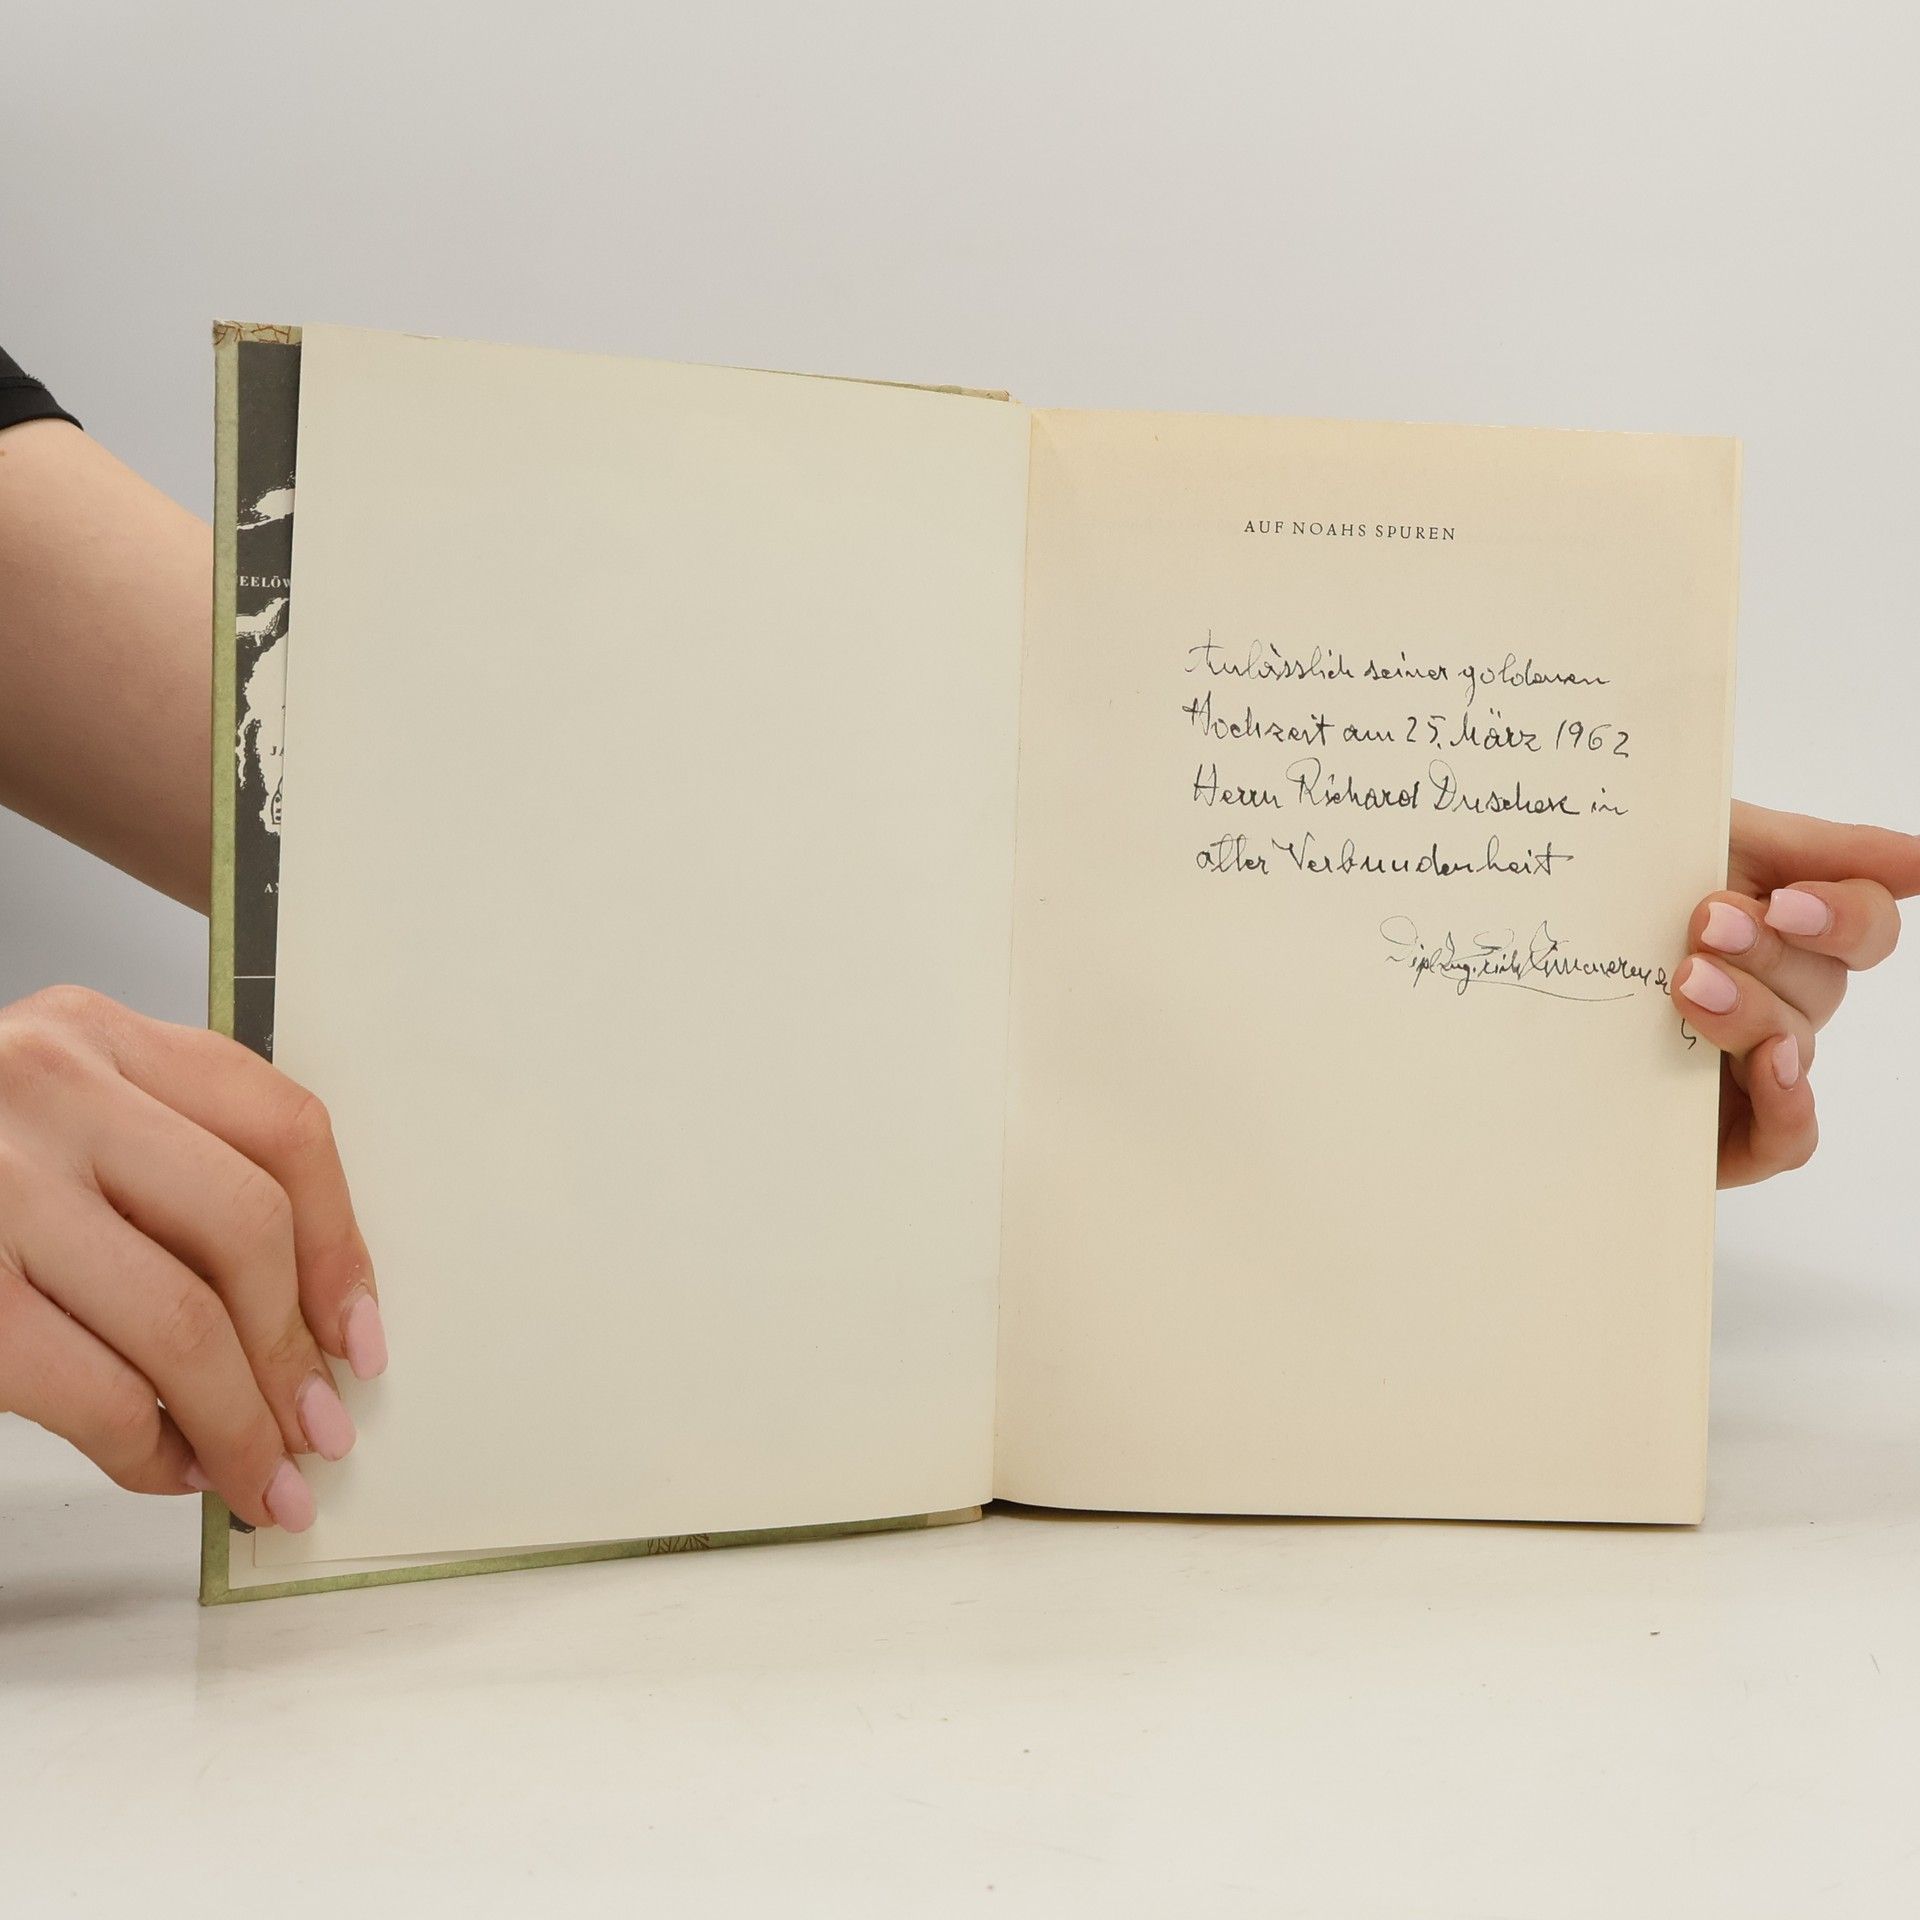 AUF NOAHS SPUREN
Anlässlich seiner goldenen
Hochzeit am 25. März 1962
Herrn Richard Duschek in
alter Verbundenheit
Dipl Ing.
EELÖW
JA